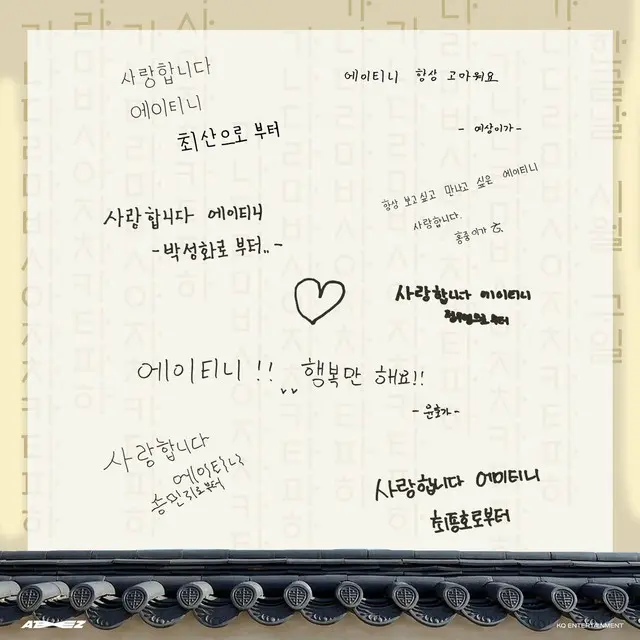 사랑합니다
에이티니
최산으로 부터
에이티니 항상 고마워요
- 예상이가 -
사랑합니다 에이티니
- 박성화로 부터.. -
항상 보고싶고 만나고 싶은 에이티니
사랑합니다.
홍중이가
사랑합니다 에이티니
정우영으로 부터
에이티니 !! 행복만 해요!!
- 윤호가 -
사랑합니다
에이티니
송민기로부터
사랑합니다 에이티니
최종호로부터
한글날 시월 구일
ATEEZ
KQ ENTERTAINMENT